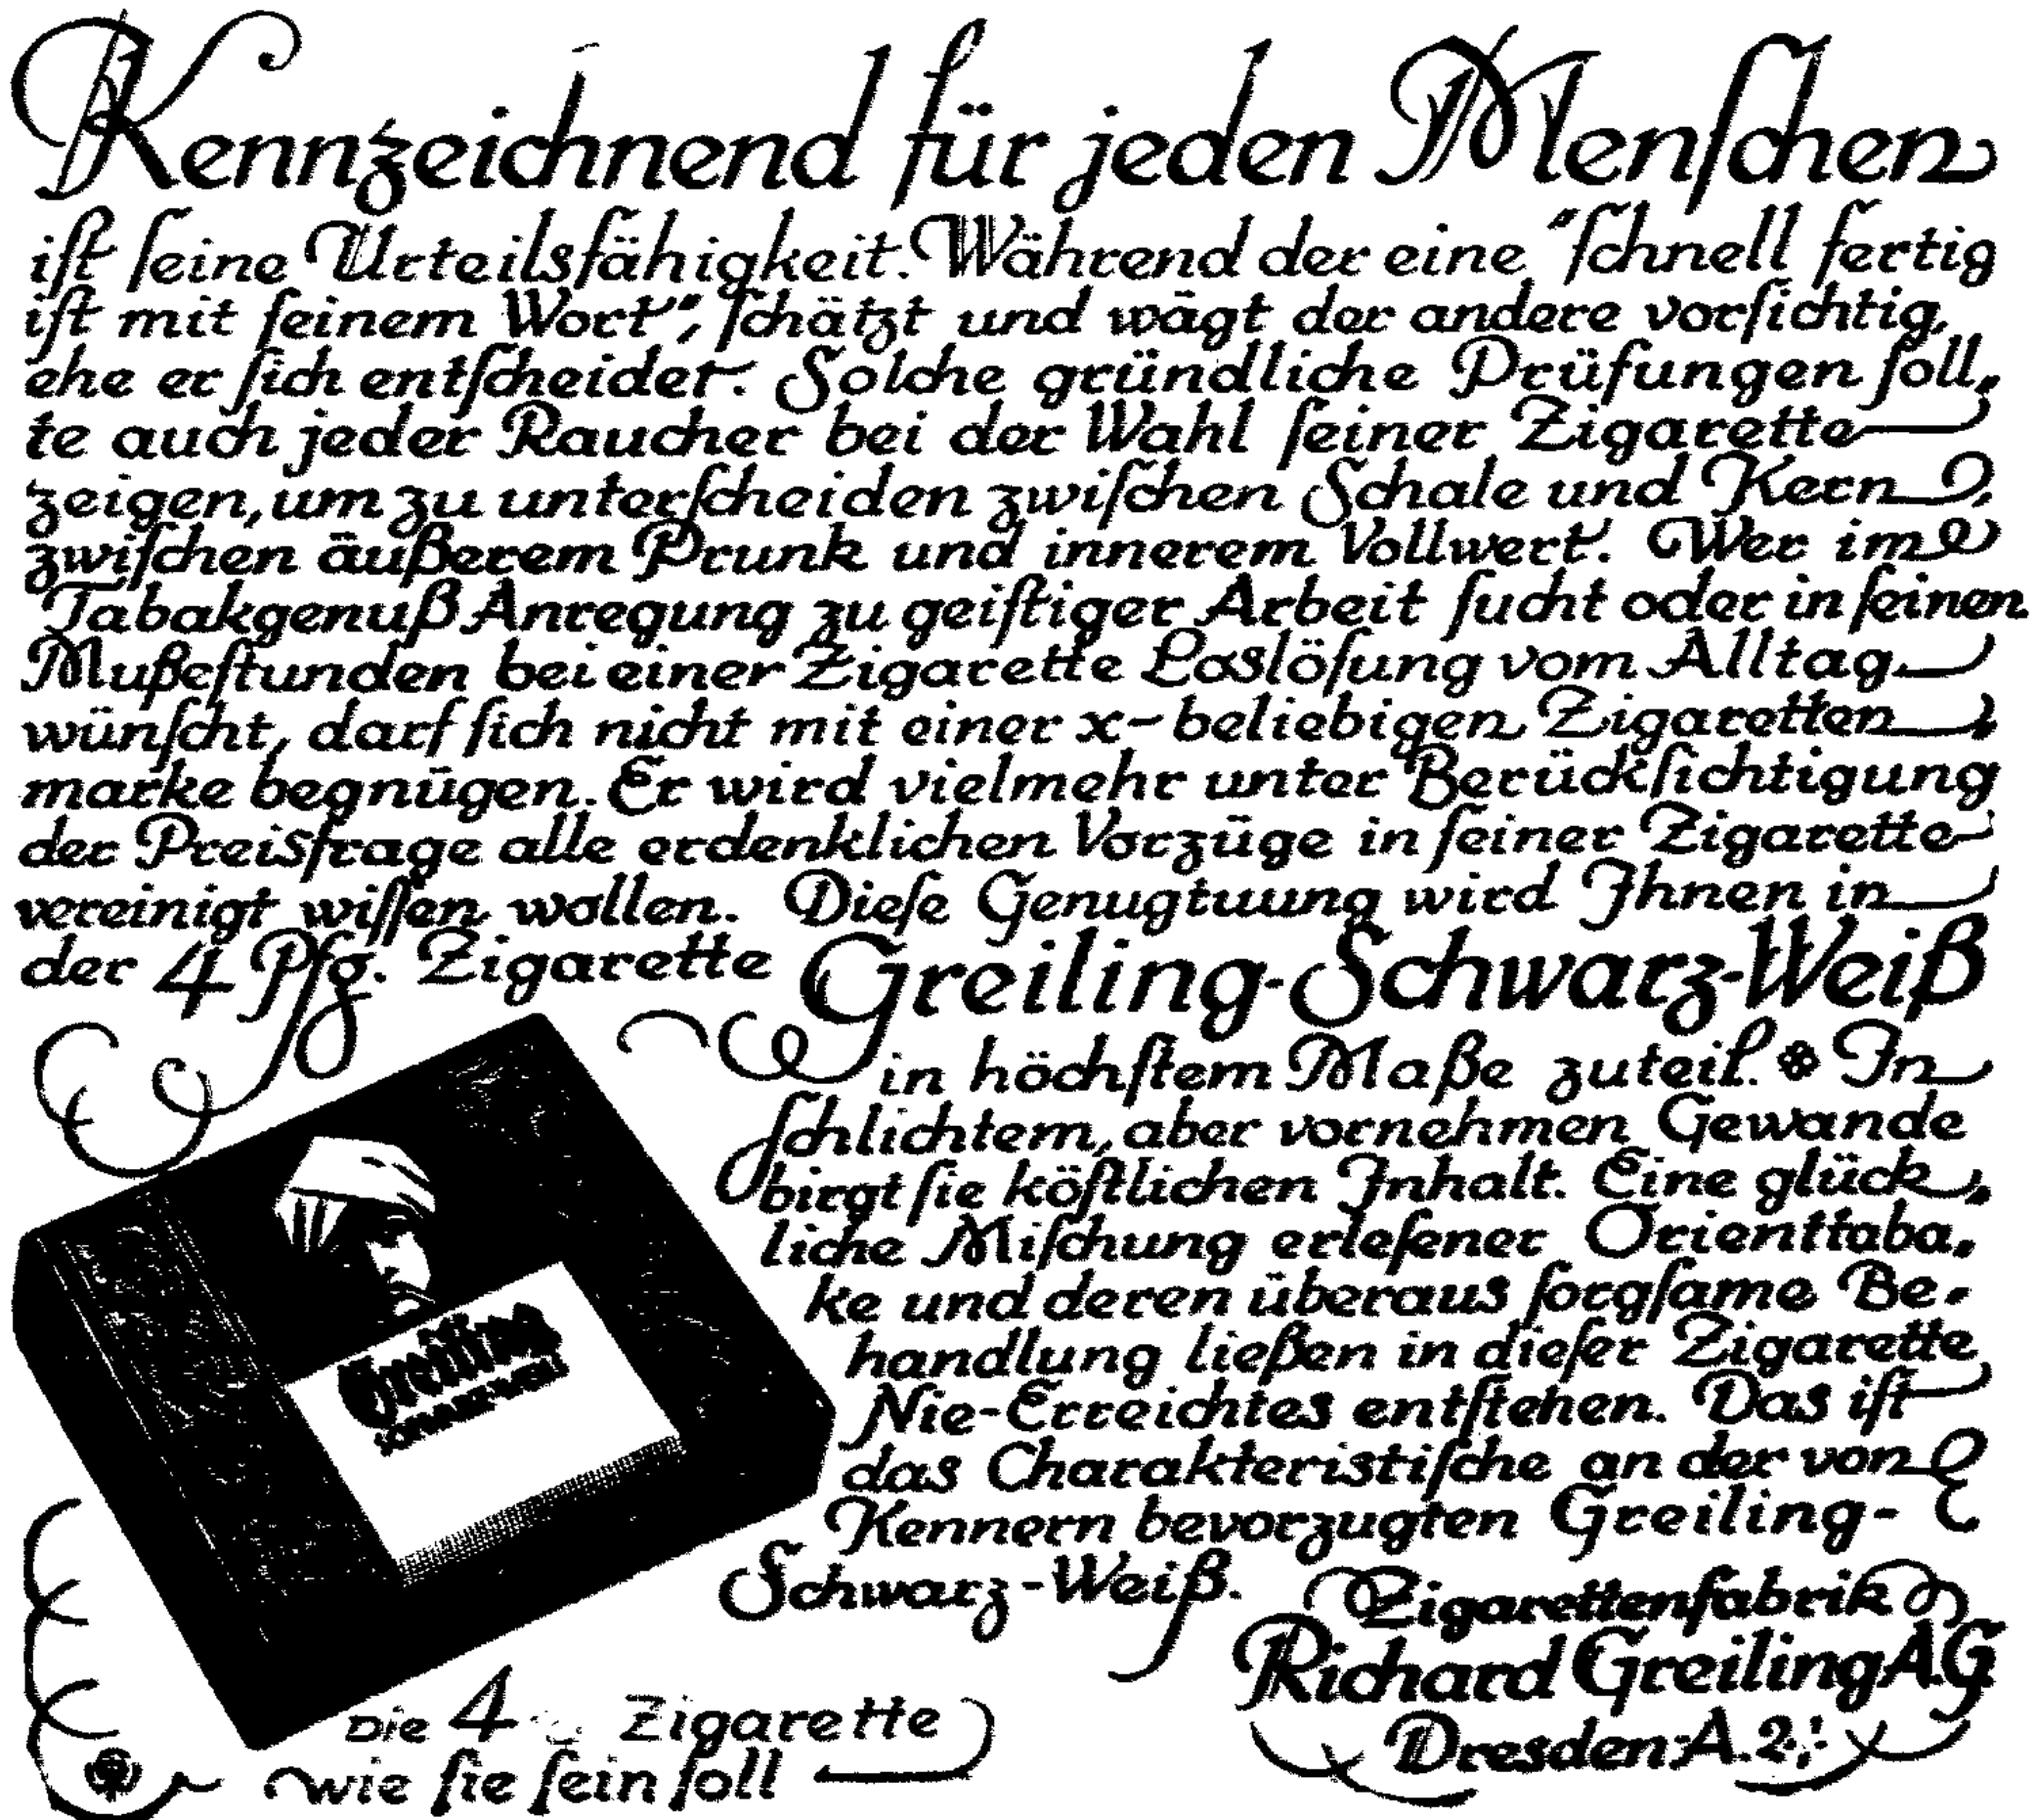 Kennzeichnend für jeden Menſchen
iſt ſeine Urteilsfähigkeit. Während der eine "ſchnell fertig
iſt mit ſeinem Wort", ſchätzt und wägt der andere vorſichtig,
ehe er ſich entſcheidet. Solche gründliche Prüfungen ſoll-
te auch jeder Raucher bei der Wahl ſeiner Zigarette
zeigen, um zu unterſcheiden zwiſchen Schale und Kern,
zwiſchen äußerem Prunk und innerem Vollwert. Wer im
Tabakgenuß Anregung zu geiſtiger Arbeit ſucht oder in ſeinen
Mußeſtunden bei einer Zigarette Loslöſung vom Alltag
wünſcht, darf ſich nicht mit einer x-beliebigen Zigaretten-
marke begnügen. Er wird vielmehr unter Berückſichtigung
der Preisfrage alle erdenklichen Vorzüge in ſeiner Zigarette
vereinigt wiſſen wollen. Dieſe Genugtuung wird Ihnen in
der 4 Pfg. Zigarette Greiling-Schwarz-Weiß
in höchſtem Maße zuteil. In
ſchlichtem, aber vornehmen Gewande
birgt ſie köſtlichen Inhalt. Eine glück-
liche Miſchung erleſener Orienttaba-
ke und deren überaus ſorgſame Be-
handlung ließen in dieſer Zigarette
Nie-Erreichtes entſtehen. Das iſt
das Charakteristiſche an der von
Kennern bevorzugten Greiling-
Schwarz-Weiß.
Greiling
SCHWARZ-WEISS
Die 4 Zigarette
wie ſie ſein ſoll
Zigarettenfabrik
Richard Greiling A.G.
Dresden-A. 2